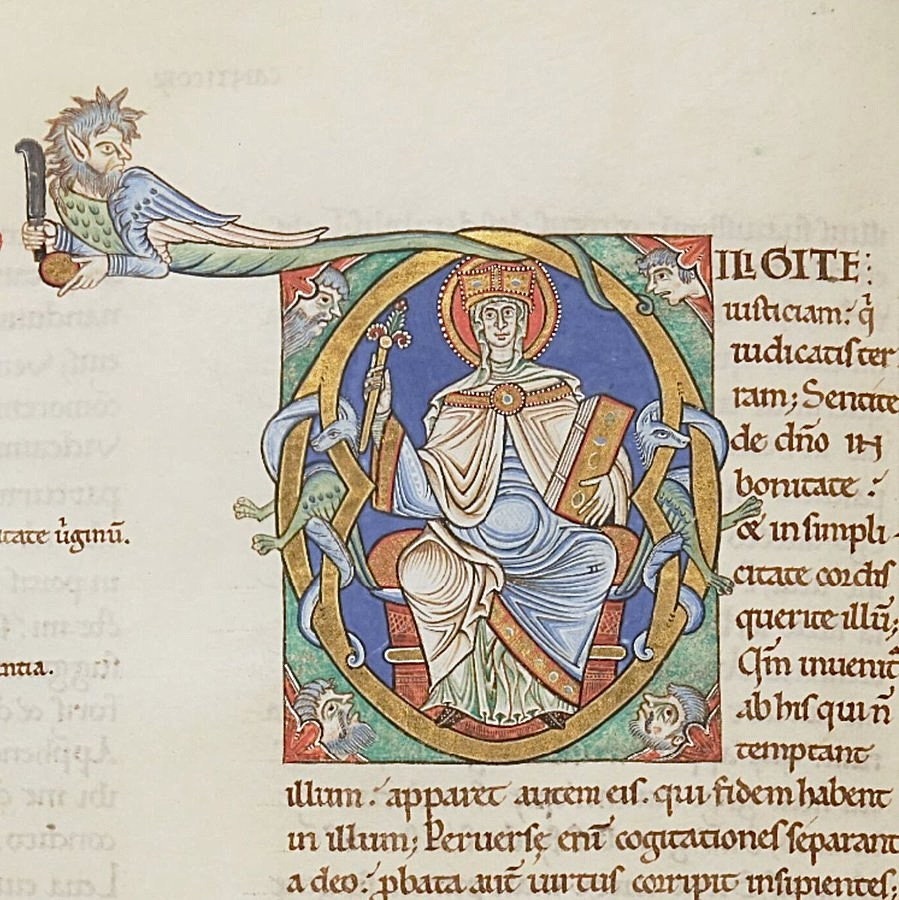 ILIGITE:
iusticiam: q̄
iudicatis ter
ram; Sentite
de dn̄o in
bonitate:
& in simpli-
citate cordis
querite illū;
Qm̄ inuenit̄
ab his qui n̄
temptant
illum: apparet autem eis. qui fidem habent
in illum; Peruerse eni̅ cogitationes separant
a deo: ꝓbata aut̄ uirtus corripit insipientes;
tate uirginū.
ntia.